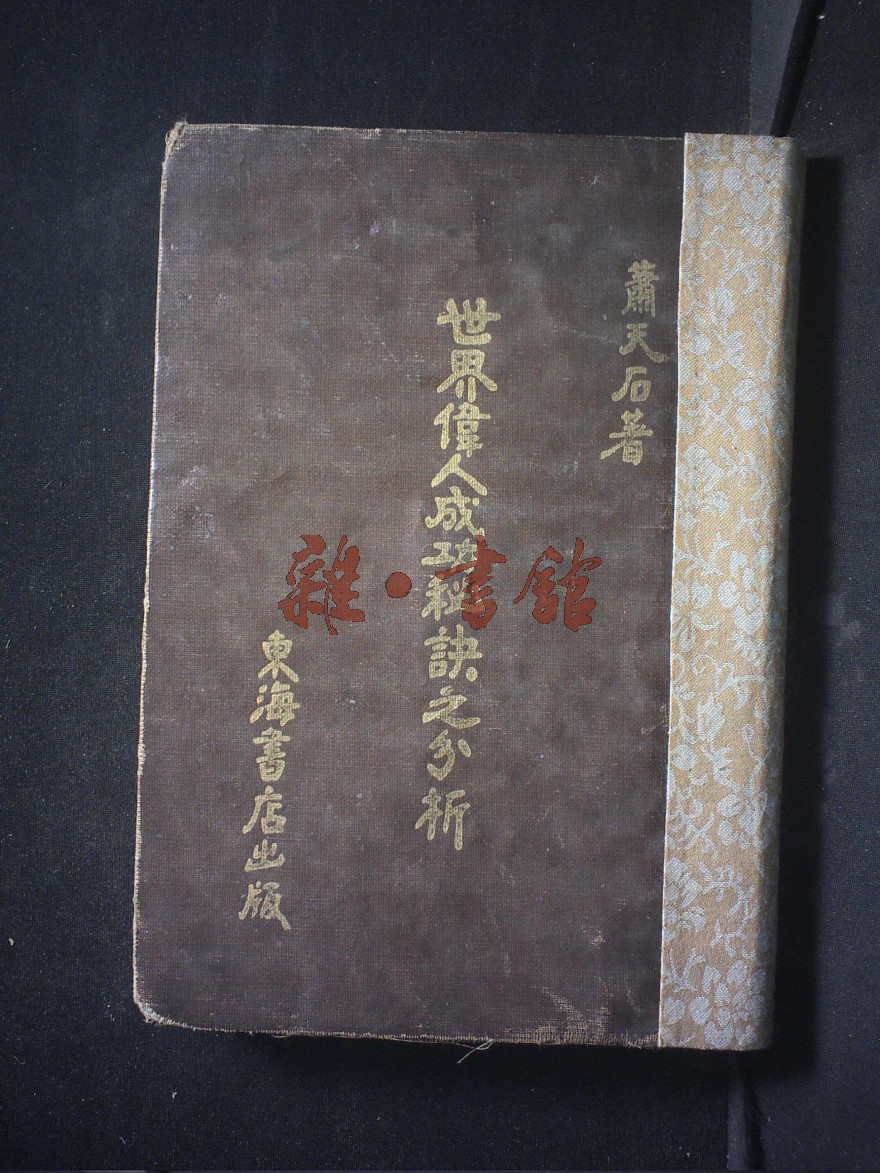 蕭天石著
世界偉人成功秘訣之分析
東海書店出版
雜·書館